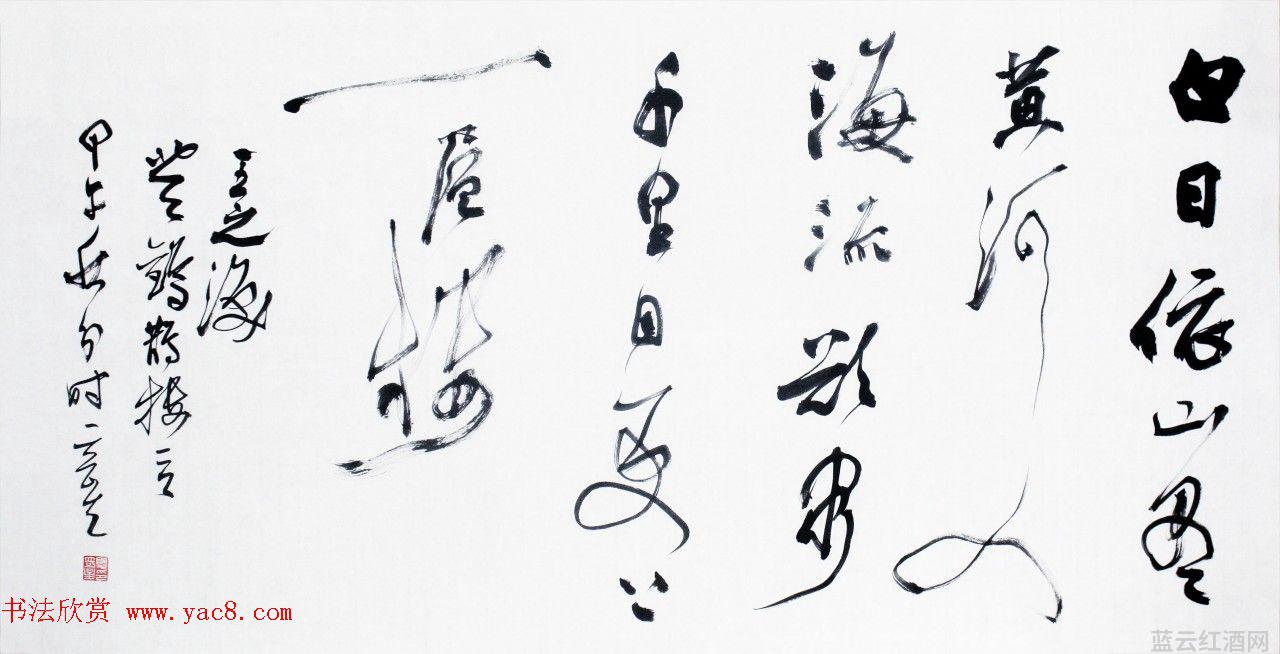 白日依山盡
黄河入
海流欲窮
千里目更上
一層樓
王之涣
登鸛鵲楼
甲午秋分时
书法欣赏 www.yac8.com
蓝云红酒网